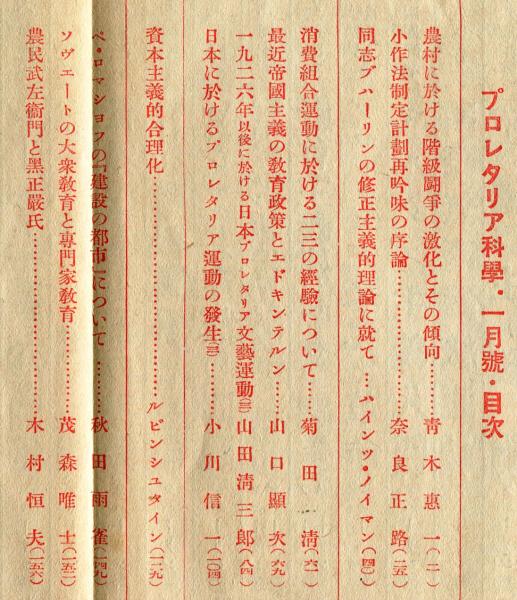 プロレタリア科學・一月號・目次
農村に於ける階級鬪爭の激化とその傾向………靑木惠一(二)
小作法制定計劃再吟味の序論………奈良正路(二五)
同志ブハーリンの修正主義的理論に就て…ハインツ・ノイマン(四〇)
消費組合運動に於ける二三の經驗について……菊田一淸(六一)
最近帝國主義の敎育政策とエドキンテルン……山口顯次(六九)
一九二六年以後に於ける日本プロレタリア文藝運動(三)山田淸三郎(八四)
日本に於けるプロレタリア運動の發生(三)………小川信一(一〇四)
資本主義的合理化………ルビンシユタイン(一二九)
ペ・ロマシヨフの「建設の都市」について………秋田雨雀(一四九)
ソヴエートの大衆敎育と專門家敎育………茂森唯士(一五二)
農民武左衞門と黑正嚴氏………木村恒夫(一五六)